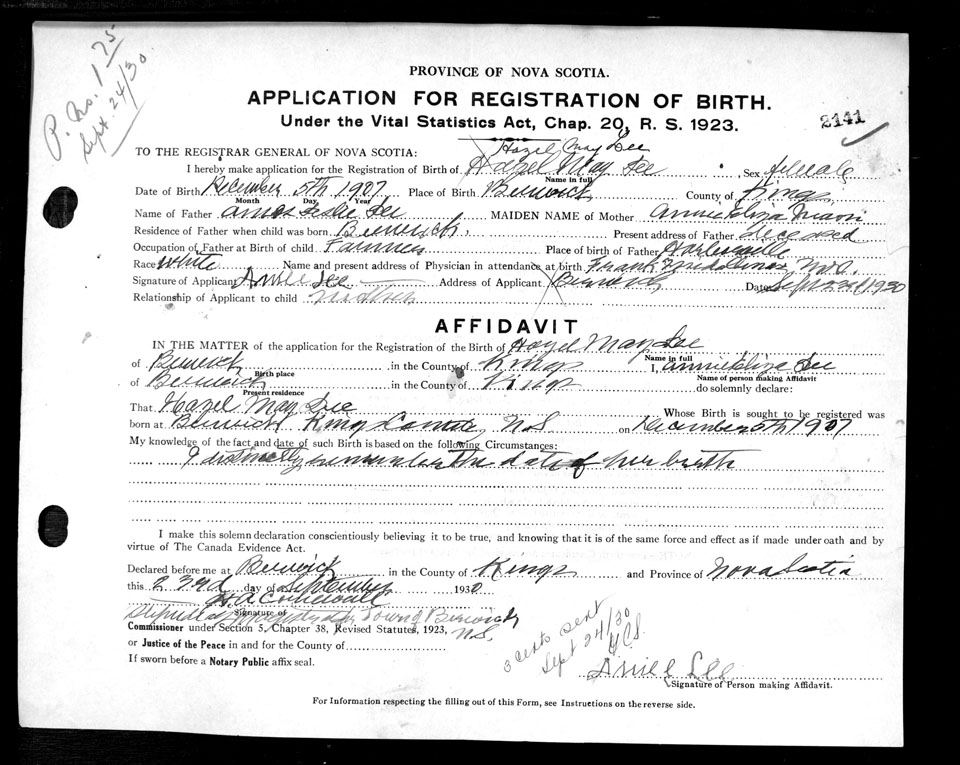 P. No. 1 75
Sept. 24/30
PROVINCE OF NOVA SCOTIA.
APPLICATION FOR REGISTRATION OF BIRTH.
Under the Vital Statistics Act, Chap. 20, R. S. 1923.
2141
TO THE REGISTRAR GENERAL OF NOVA SCOTIA:
Hazel May Lee
I hereby make application for the Registration of Birth of Hazel May Lee, Sex female
Name in full
Date of Birth December 5th 1907 Place of Birth Berwick, County of Kings
Month Day Year
Name of Father Leslie Lee MAIDEN NAME of Mother Annie Eliza
Residence of Father when child was born Berwick. Present address of Father deceased
Occupation of Father at Birth of child Farmer Place of birth of Father
Race white Name and present address of Physician in attendance at birth Frank N.S.
Signature of Applicant Annie Lee Address of Applicant Berwick Date Sept 23d 1930
Relationship of Applicant to child Mother
AFFIDAVIT
IN THE MATTER of the application for the Registration of the Birth of Hazel May Lee
Name in full
of Berwick in the County of Kings I, Annie Eliza Lee
Birth place Name of person making Affidavit
of Berwick in the County of Kings do solemnly declare:
Present residence
That Hazel May Lee Whose Birth is sought to be registered was
born at Berwick Kings County, N.S on December 5th 1907
My knowledge of the fact and date of such Birth is based on the following Circumstances:
I distinctly remember the date of her birth
I make this solemn declaration conscientiously believing it to be true, and knowing that it is of the same force and effect as if made under oath and by
virtue of The Canada Evidence Act.
Declared before me at Berwick in the County of Kings and Province of Nova Scotia
this 23rd day of September 1930
Signature of
Stipendiary Magistrate Town of Berwick
N.S.
Commissioner under Section 5, Chapter 38, Revised Statutes, 1923,
or Justice of the Peace in and for the County of
If sworn before a Notary Public affix seal.
3 certs sent
Sept 24/30
Annie Lee
Signature of Person making Affidavit.
For Information respecting the filling out of this Form, see Instructions on the reverse side.